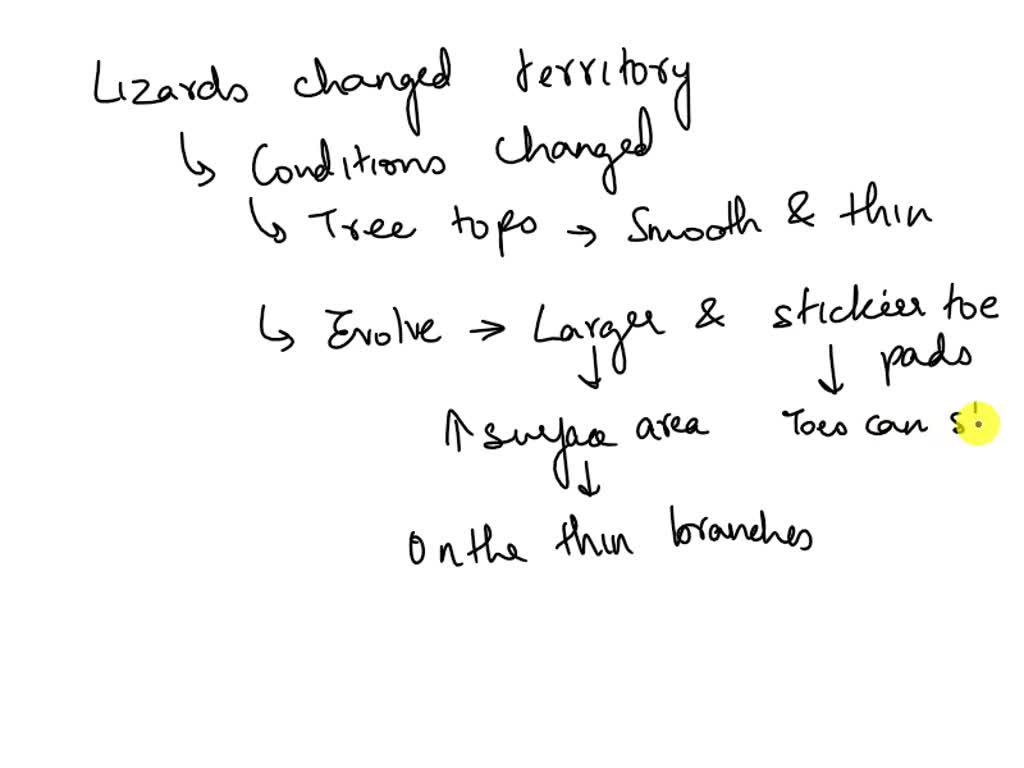 Lizards changed territory
↳ Conditions changed
↳ Tree tops → Smooth & thin
↳ Evolve → Larger & stickier toe pads
↑ surface area Toes can s
On the thin branches